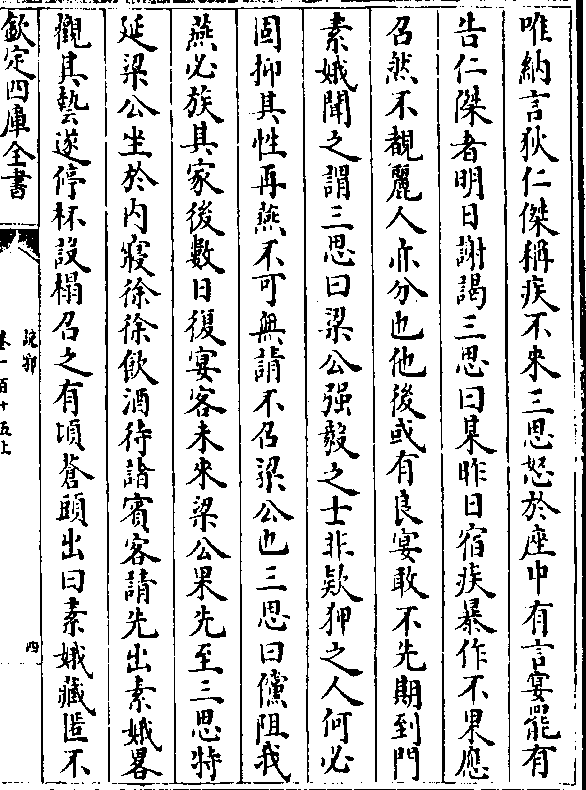 唯納言狄仁傑稱疾不來三思怒於座中有言宴罷有
告仁傑者明日謝謁三思曰某昨日宿疾暴作不果應
召然不覩麗人亦分也他後或有良宴敢不先期到門
素娥聞之謂三思曰梁公强毅之士非欵狎之人何必
固抑其性再燕不可無請不召梁公也三思曰儻阻我
燕必族其家後數日復宴客未來梁公果先至三思特
延梁公坐於内寢徐徐飲酒待諸賓客請先出素娥畧
觀其藝遂停杯設榻召之有頃蒼頭出曰素娥藏匿不
欽定四庫全書
說郛
卷一百十五上
四